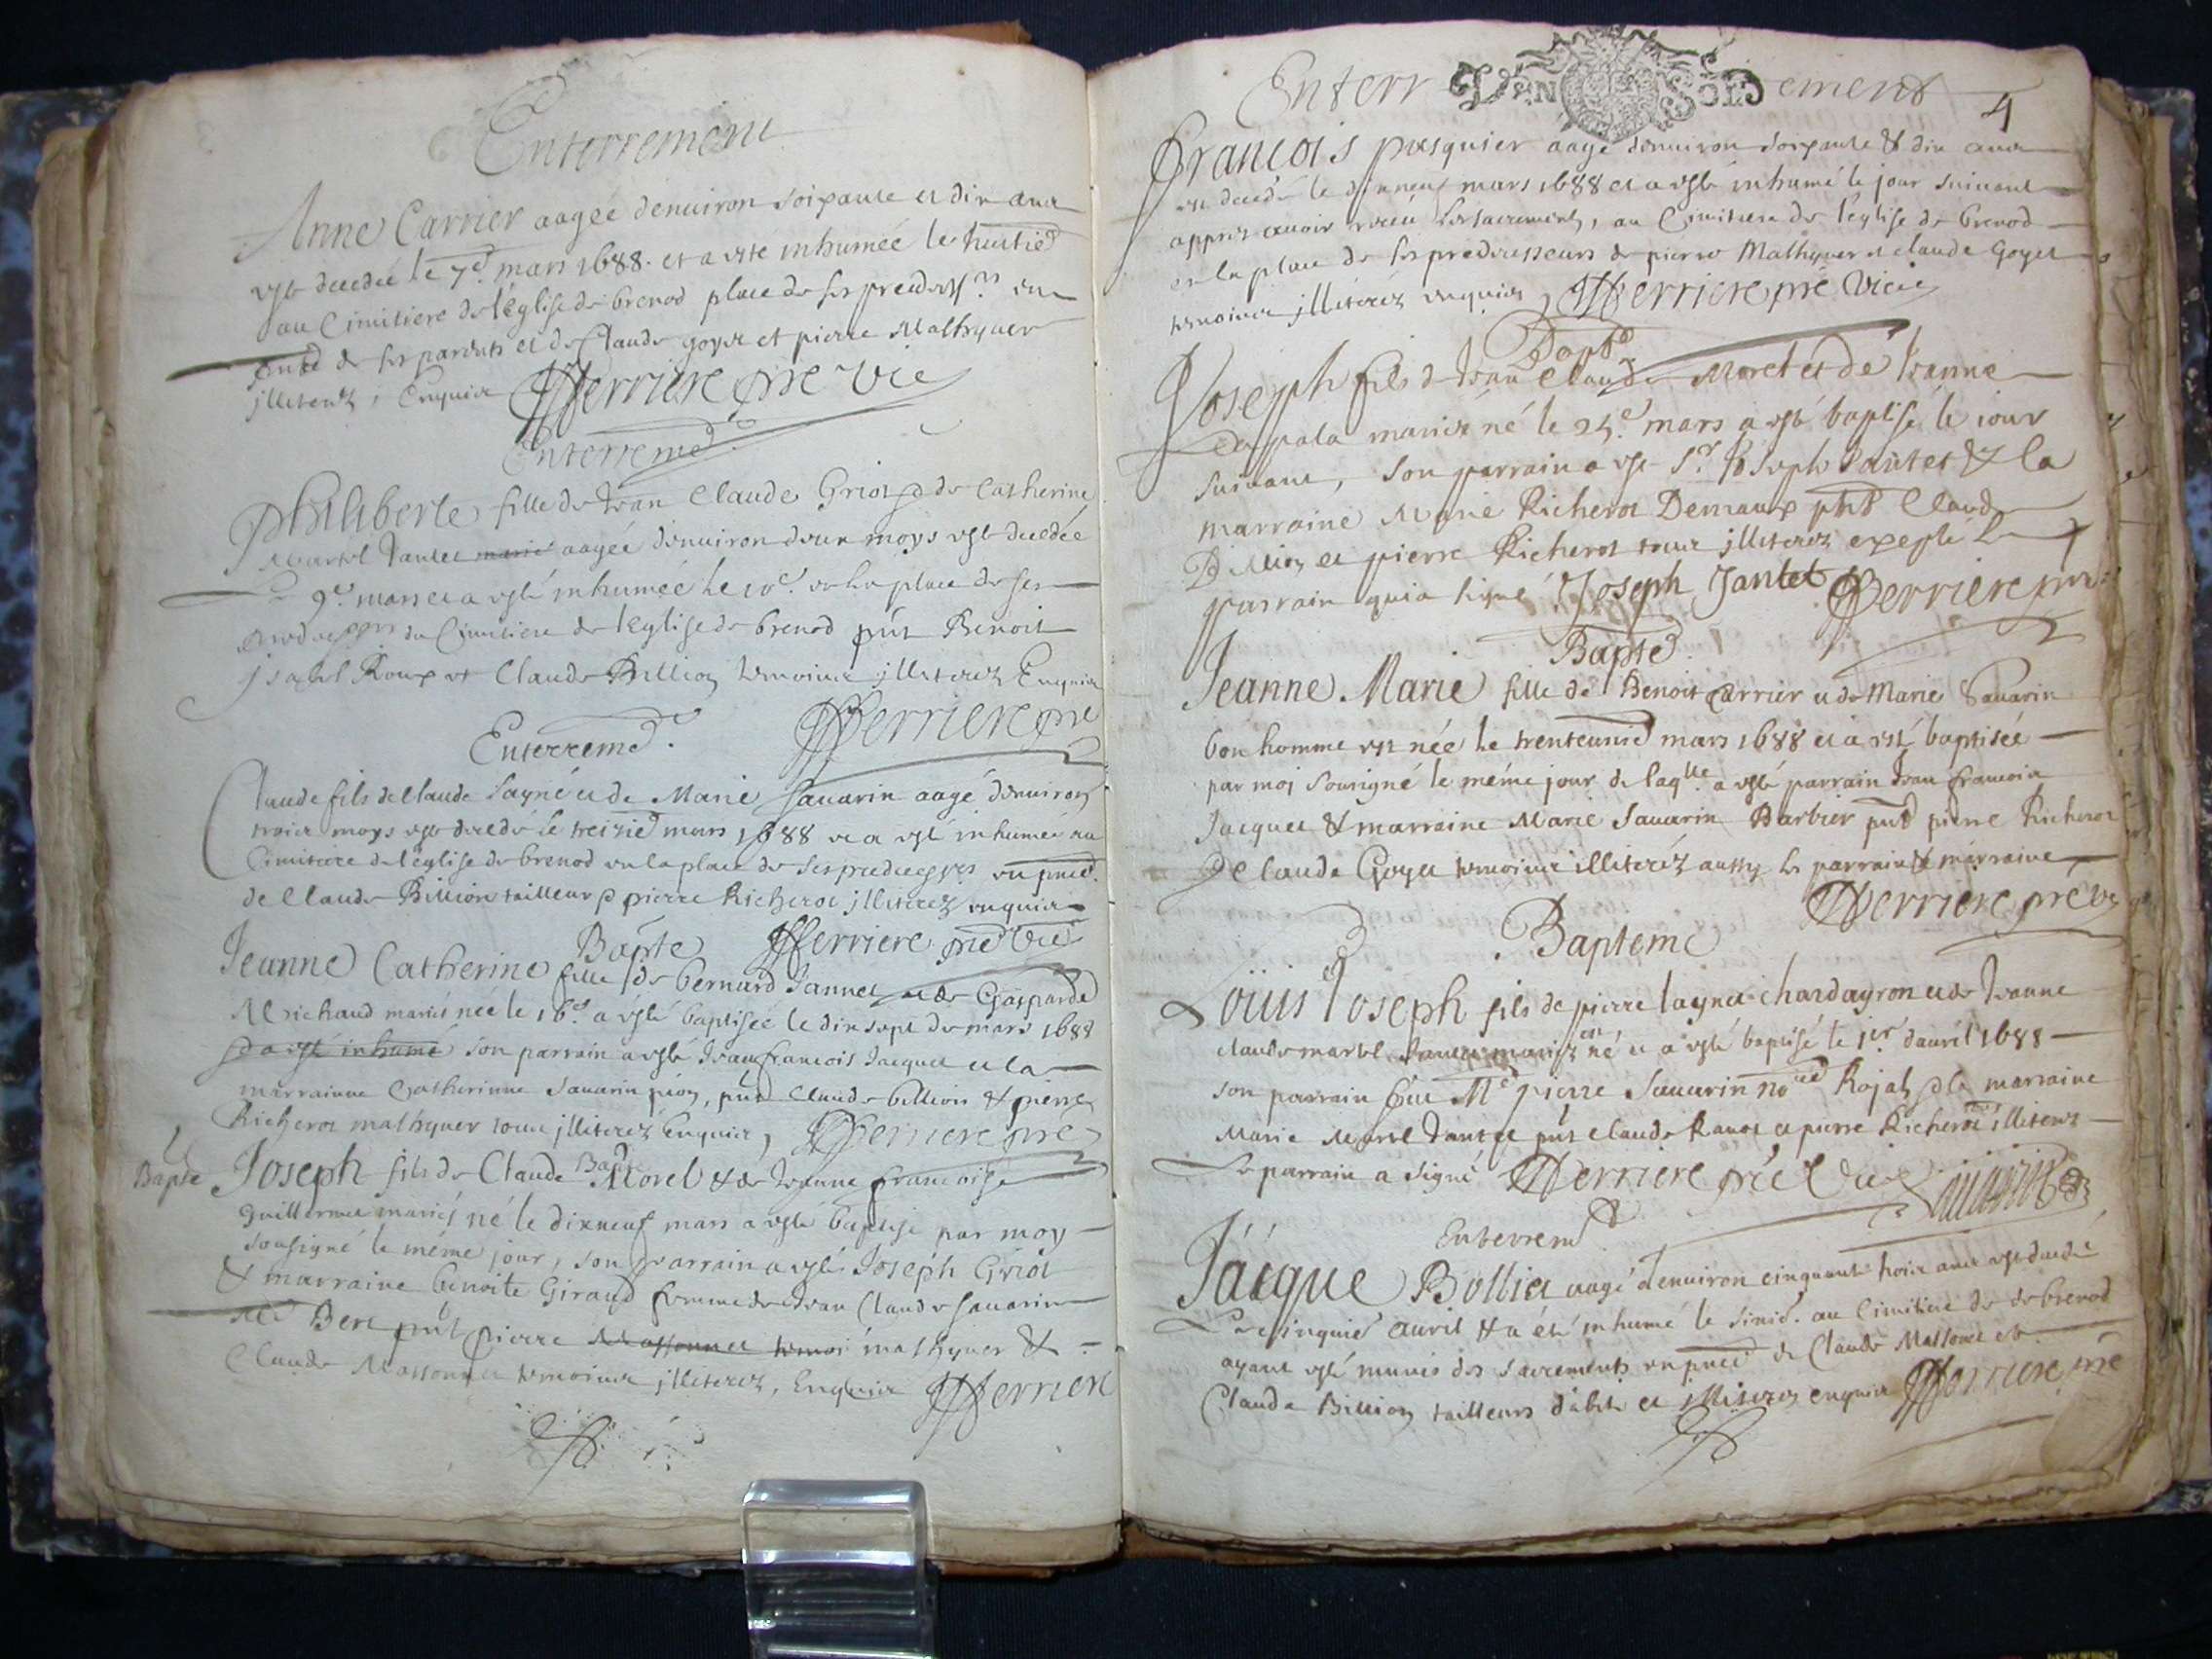 Enterrement
Anne Carrier aagée denuiron soixante et dix ans
est decedée le 7e. mars 1688. et a este inhumée le huitie
au Cimitiere de leglise de brenod place de ses
de ses parents et de Claude goyet et pierre Mathyuer
illiterez, Enquis JFerriere pre vic
Enterremt.
Philiberte fille de Jean Claude Griot & de Catherine
Martel Jantet aagée denuiron deux moys est decedée
le 9e. mars et a esté inhumée le 10e. en la place de ses
du Cimitiere de leglise de brenod pnt Benoit
Roux et Claude Billion temoins illiterez Enquis
Enterremt. JFerriere pre
Claude fils de Claude Layné et de Marie Sauarin aagé denuiron
trois moys est decedé le treizie mars 1688 et a esté inhumé au
Cimitiere de leglise de brenod en la place de ses en
de Claude Billion tailleur & pierre Richerot illiterez enquis
Bapte JFerriere pre vic
Jeanne Catherine fille de bernard Jannet et de Gasparde
Michaud mariés née le 16e. a esté baptisée le dix sept de mars 1688
& a esté inhumé son parrain a esté Jean francois Jacquet et la
marrainne Catherinne Sauarin pion, pnt Claude billion & pierre
Richerot mathyuer tous illiterez Enquis, JFerriere pre
Bapte Joseph fils de Claude Morel & de Jeanne francoise
Bapte
Guillermet mariés né le dixneuf mars a esté baptisé par moy
sousigné le méme jour, son parrain a esté Joseph Griot
& marraine benoite Giraud femme de Jean Claude Sauarin
pnt pierre Massonnet mathyuer &
Claude Massonnet temoins illiterez, Enquis JFerriere
Enterrement
4
Francois pasquier aagé denuiron soixante & dix ans
est decedé le dixneuf mars 1688 et a esté inhumé le jour suiuant
appres auoir receu les sacrements, au Cimitiere de leglise de brenod
en la place de ses predecesseurs de pierre Mathyuer et claude Goyet
temoins illiterez enquis, JFerriere pre vicie
Bapte
Joseph fils de Jean Claude Moret et de Jeanne
mariés né le 25e. mars a esté baptisé le jour
suiuant, son parrain a este Sr. Joseph Jantet & la
marraine Marie Richerot Demaux pnt Claude
Billion et pierre Richerot tous illiterez exepté le
parrain qui a signé Joseph Jantet JFerriere pre
Bapte.
Jeanne Marie fille de Benoit Carrier et de Marie Sauarin
bon homme est née le trenteunie mars 1688 et a esté baptisée
par moi sousigné le méme jour de laqlle. a esté parrain Jean francois
Jacquet & marraine Marie Sauarin Barbier pnt pierre Richerot
& Claude Goyet temoins illiterez aussy le parrain & marraine
JFerriere pre vic
Bapteme
Loüis Joseph fils de pierre Laynet chardayron et de Jeanne
claude martel Jantet mariés est né et a esté baptisé le 1er dauril 1688
son parrain fut Me pierre Sauarin Rojal & la marraine
Marie Martel Jantet pnt claude Rauot et pierre Richerot illiterez
Le parrain a signé JFerriere pre vic Sauarin
Enterremt
Jacque Bollict aagé denuiron cinquante trois ans est decedé
Le cinquie auril & a été inhumé le sixie. au Cimitiere de de brenod
ayant esté munis des sacrements en de Claude Massonet et
Claude Billion tailleurs dabits et illiterez enquis JFerriere pre